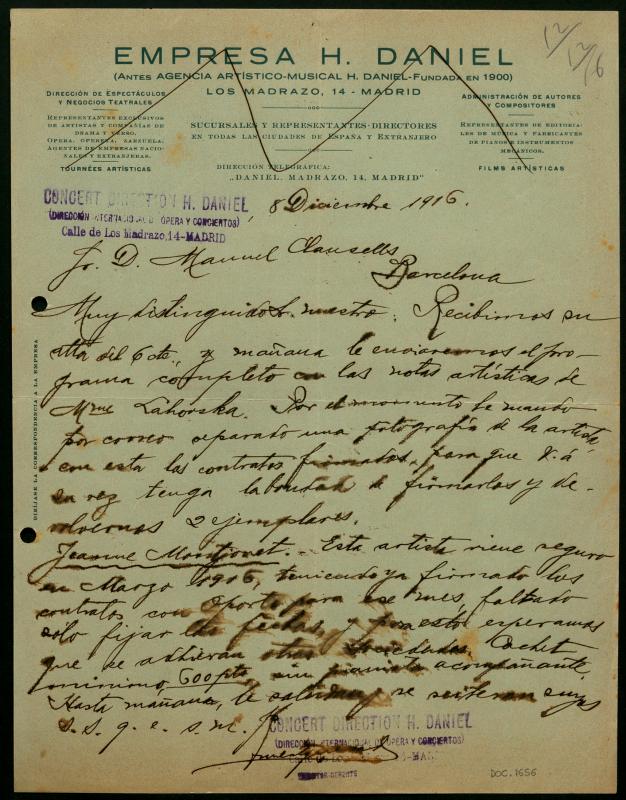 12/12/6
EMPRESA H. DANIEL
(ANTES AGENCIA ARTÍSTICO-MUSICAL H. DANIEL-FUNDADA EN 1900)
LOS MADRAZO, 14 - MADRID
DIRECCIÓN DE ESPECTÁCULOS
Y NEGOCIOS TEATRALES
REPRESENTANTES EXCLUSIVOS
DE ARTISTAS Y COMPAÑÍAS DE
DRAMA Y VERSO,
OPERA, OPERETA, ZARZUELA.
AGENTES DE EMPRESAS NACIO-
NALES Y EXTRANJERAS.
TOURNÉES ARTÍSTICAS
SUCURSALES Y REPRESENTANTES-DIRECTORES
EN TODAS LAS CIUDADES DE ESPAÑA Y EXTRANJERO
DIRECCIÓN TELEGRÁFICA:
„DANIEL, MADRAZO, 14, MADRID"
ADMINISTRACIÓN DE AUTORES
Y COMPOSITORES
REPRESENTANTES DE EDITORIA-
LES DE MÚSICA Y FABRICANTES
DE PIANOS E INSTRUMENTOS
MECÁNICOS.
FILMS ARTÍSTICAS
CONCERT DIRECTION H. DANIEL
(DIRECCIÓN INTERNACIONAL DE OPERA Y CONCIERTOS)
Calle de Los Madrazo, 14-MADRID
8 Diciembre 1916.
Sr. D. Manuel Clausells
Barcelona
Muy distinguido Sr. nuestro: Recibimos su
atta del 6 cte., y mañana le enviaremos el pro-
grama completo con las notas artísticas de
Mme Lahowska. Por el momento le mando
por correo separado una fotografía de la artista
con esta los contratos firmados, para que V. á
su vez tenga la bondad de firmarlos y de-
volvernos 2 ejemplares.
Jeanne Montjovet. - Esta artista viene seguro
en Marzo 1916, teniendo ya firmado los
contratos con Oporto para ese mes, faltando
sólo fijar las fechas, y por esto esperamos
que se adhieran otras Sociedades. Cachet
minimo, 600 pts, sin pianista acompañante.
Hasta mañana, le saludan y se reiteran suyos
s. s. q. e. s. m.
CONCERT DIRECTION H. DANIEL
(DIRECCIÓN INTERNACIONAL DE OPERA Y CONCIERTOS)
CALLE DE LOS 14-MAD
DIRECTOR GERENTE
DIRÍJASE LA CORRESPONDENCIA A LA EMPRESA
DOC. 1656